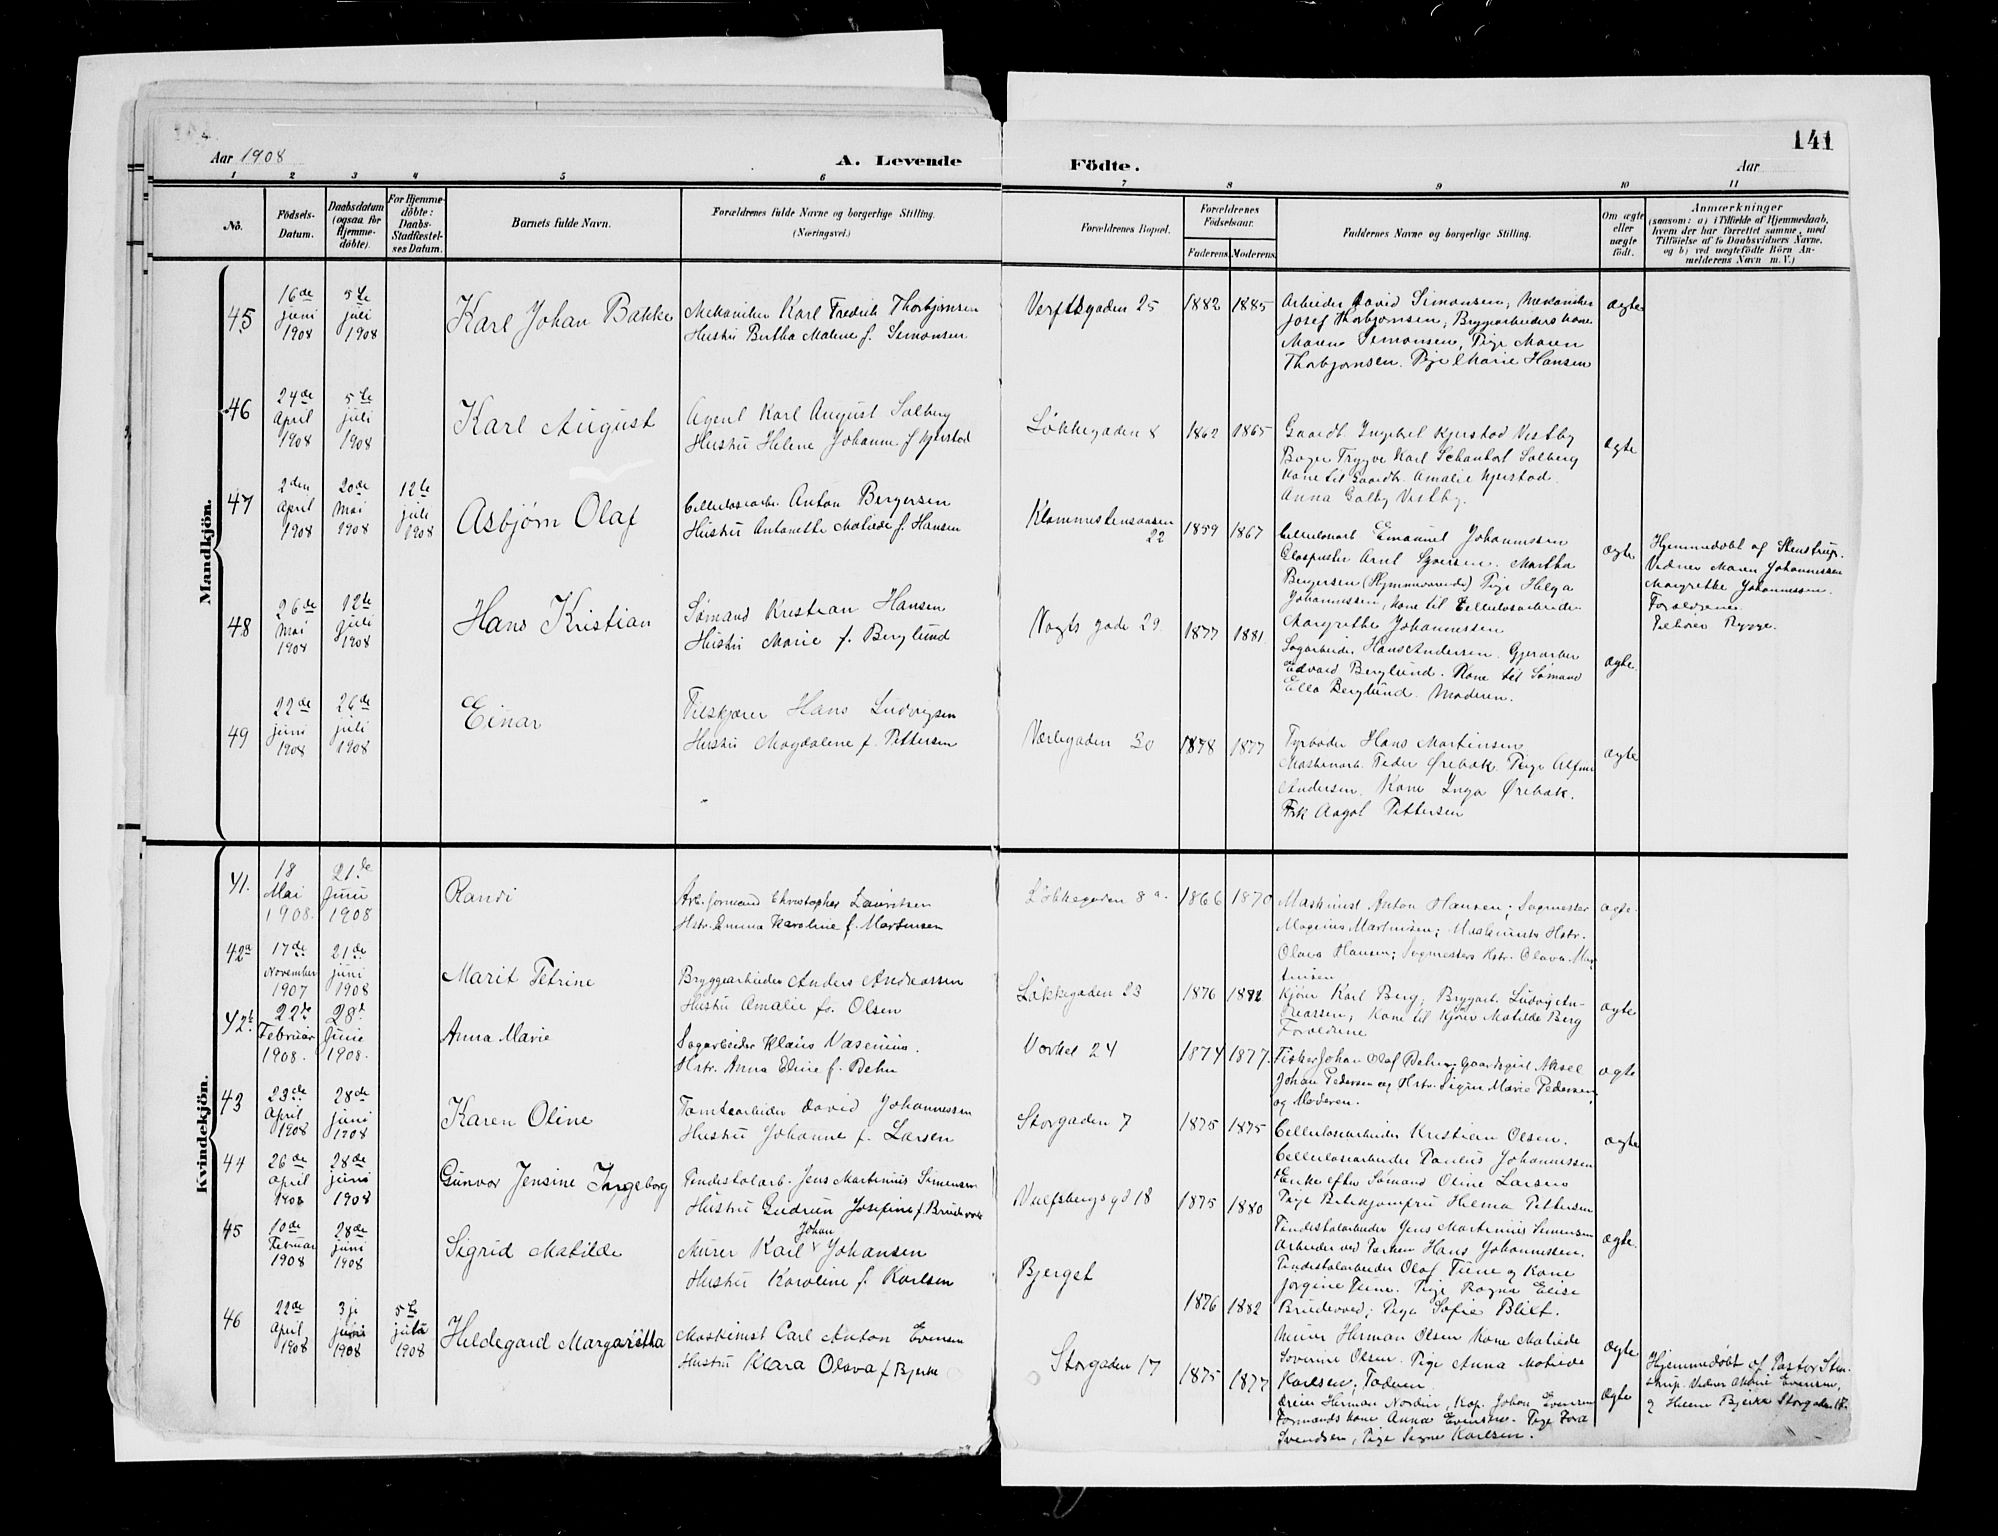 141
Aar 1908
A. Levende
Födte.
Aar
1 2 3 4 5 6 7 8 9 10 11
No.
Födsels-
Datum.
Daabsdatum
(ogsaa for
Hjemme-
döbte).
For Hjemme-
döbte:
Daabs-
Stadfæstel-
ses Datum.
Barnets fulde Navn.
Forældrenes fulde Navne og borgerlige Stilling.
(Næringsvei.)
Forældrenes Bopæl.
Forældrenes
Födselsaar.
Faderens.
Moderens.
Faddernes Navne og borgerlige Stilling.
Om ægte
eller
uægte
födt.
Anmærkninger
(saasom: a) i Tilfælde af Hjemmedaab,
hvem der har forrettet samme, med
Tilföielse af to Daabsvidners Navne,
og b) ved uægtefödte Börn An-
melderens Navn m. V.)
Mandkjön.
45
16de
juni
1908
5te
juli
1908
Karl Johan Bakke
Mekaniker Karl Fredrik Thorbjørnsen
Hustru Bertha Malene f. Simonsen
Verftsgaden 25
1882
1885
Arbeider David Simonsen, Mekaniker
Josef Thorbjørnsen, Bryggarbeiders kone
Maren Simonsen, Pige Maren
Thorbjørnsen. Pige Marie Hansen
ægte
46
24de
April
1908
5te
juli
1908
Karl August
Agent Karl August Solberg
Hustru Helene Johanne f. Kjerstad
Løkkegaden 8
1862
1865
Gaardb. Ingebret Kjerstad Vestby
Bager Trygve Karl Solberg
Kone til Gaardb. Amalie Kjerstad
Anna Galby Vestby.
ægte
47
2den
April
1908
20de
Mai
1908
12te
juli
1908
Asbjørn Olaf
Cellulosearb. Anton Bergersen
Hustru Antonette Matilde f. Hansen
22
1859
1867
Cellulosearb Emanuel Johannessen
Martha
Bergersen (Hjemmeværende) Pige Helga
Johannessen, Kone til Cellulosearbeider
Margrethe Johannessen
ægte
Hjemmedøbt af Stenstrup.
Vidner Maren Johannessen
Margrethe Johannessen.
Forældrene
Rygge.
48
26de
Mai
1908
12te
juli
1908
Hans Kristian
Sømand Kristian Hansen
Hustru Marie f. Berglund
Vogts gade 29
1877
1881
Sagarbeider Hans Andersen.
Edvard Berglund. Kone til Sømand
Ella Berglund. Moderen.
ægte.
49
22de
juni
1908
26de
juli
1908
Einar
Tilskjærer Hans Ludvigsen
Hustru Magdalene f. Pettersen
Værlegaden 30
1878
1877
Fyrbøder Hans Martinsen
Maskinarb. Peder Ørebæk Pige
Andersen. Kone Inga Ørebæk.
Frk Aagot Pettersen
ægte
Kvindekjön.
41.
18
Mai
1908.
21de
Juni
1908
Randi
Arb. formand Christopher Lauritsen
Hstr. Emma Karoline f. Martinsen
Løkkegaden 8 a.
1866
1870
Maskinist Anton Hansen; Sagmester
Magnius Martinsen; Maskinists Hstr.
Olava Hansen; Sagmesters Hstr. Olava Mar-
tinsen
ægte.
42a
17de
November
1907
21de
juni
1908
Marit Petrine
Bryggearbeider Anders Andreassen
Hustru Amalie fø. Olsen
Løkkegaden 23
1876
1882
Kjører Karl Berg; Bryggarb. Ludvig An-
dreassen; Kone til Kjører Matilde Berg
Forældrene
ægte
42b
22de
Februar
1908.
28d
Juni
1908.
Anna Marie
Sagarbeider Klaus Vasenius.
Hstr. Anna Eline f. Behn
Vorket 24
1874
1877.
Fisker Johan Olaf Behn, Gaardsgut Aksel
Johan Pedersen og Hstr. Signe Marie Pedersen
og Moderen.
ægte
43
23de
April
1908
28de
juni
1908
Karen Oline
Tomtearbeider David Johannessen
Hustru Johanne f. Larsen
Storgaden 7
1875
1875
Cellulosearbeider Kristian Olsen.
Cellulosearbeider Paulus Johannessen
Enke efter Sømand Oline Larsen
Pige Hilma Pettersen
ægte
44
26de
April
1908
28de
juni
1908
Gunvor Jensine Ingeborg
Pindestolarb. Jens Martinius Simensen
Hustru Gudrun Josefine f. Brudevold
Vulfsbergs gd 18
1875
1880
Pindestolarbeider Jens Martinius Simensen
Arbeider ved Parken Hans Johannessen.
Pindestolarbeider Olaf Tune og Kone
Jorgine Tune. Pige Ragna Elise
Brudevold; Pige Sofie Blixt.
ægte.
45
10de
Februar
1908
28de
juni
1908
Sigrid Matilde
Johan
Murer Karl v Johansen
Hustru Karoline f. Karlsen
Bjerget
1876
1882
Murer Herman Olsen Kone Matilde
Severine Olsen. Pige Anna Matilde
Karlsen; Faderen
ægte
46
22de
April
1908
3je
juni
1908
5te
juli
1908
Hildegard Margaretha
Maskinist Carl Anton Evensen
Hustru Klara Olava f Bjerke
Storgaden 17
1875
1877
Dreier Herman Nordin, Kap. Johan Evensen
Formands kone Anna Evensen. Pige Thora
Svendsen, Pige Signe Karlsen.
ægte
Hjemmedøbt af Pastor Sten-
strup. Vidner Marie Evensen,
og Bjerke Storgaden 17.